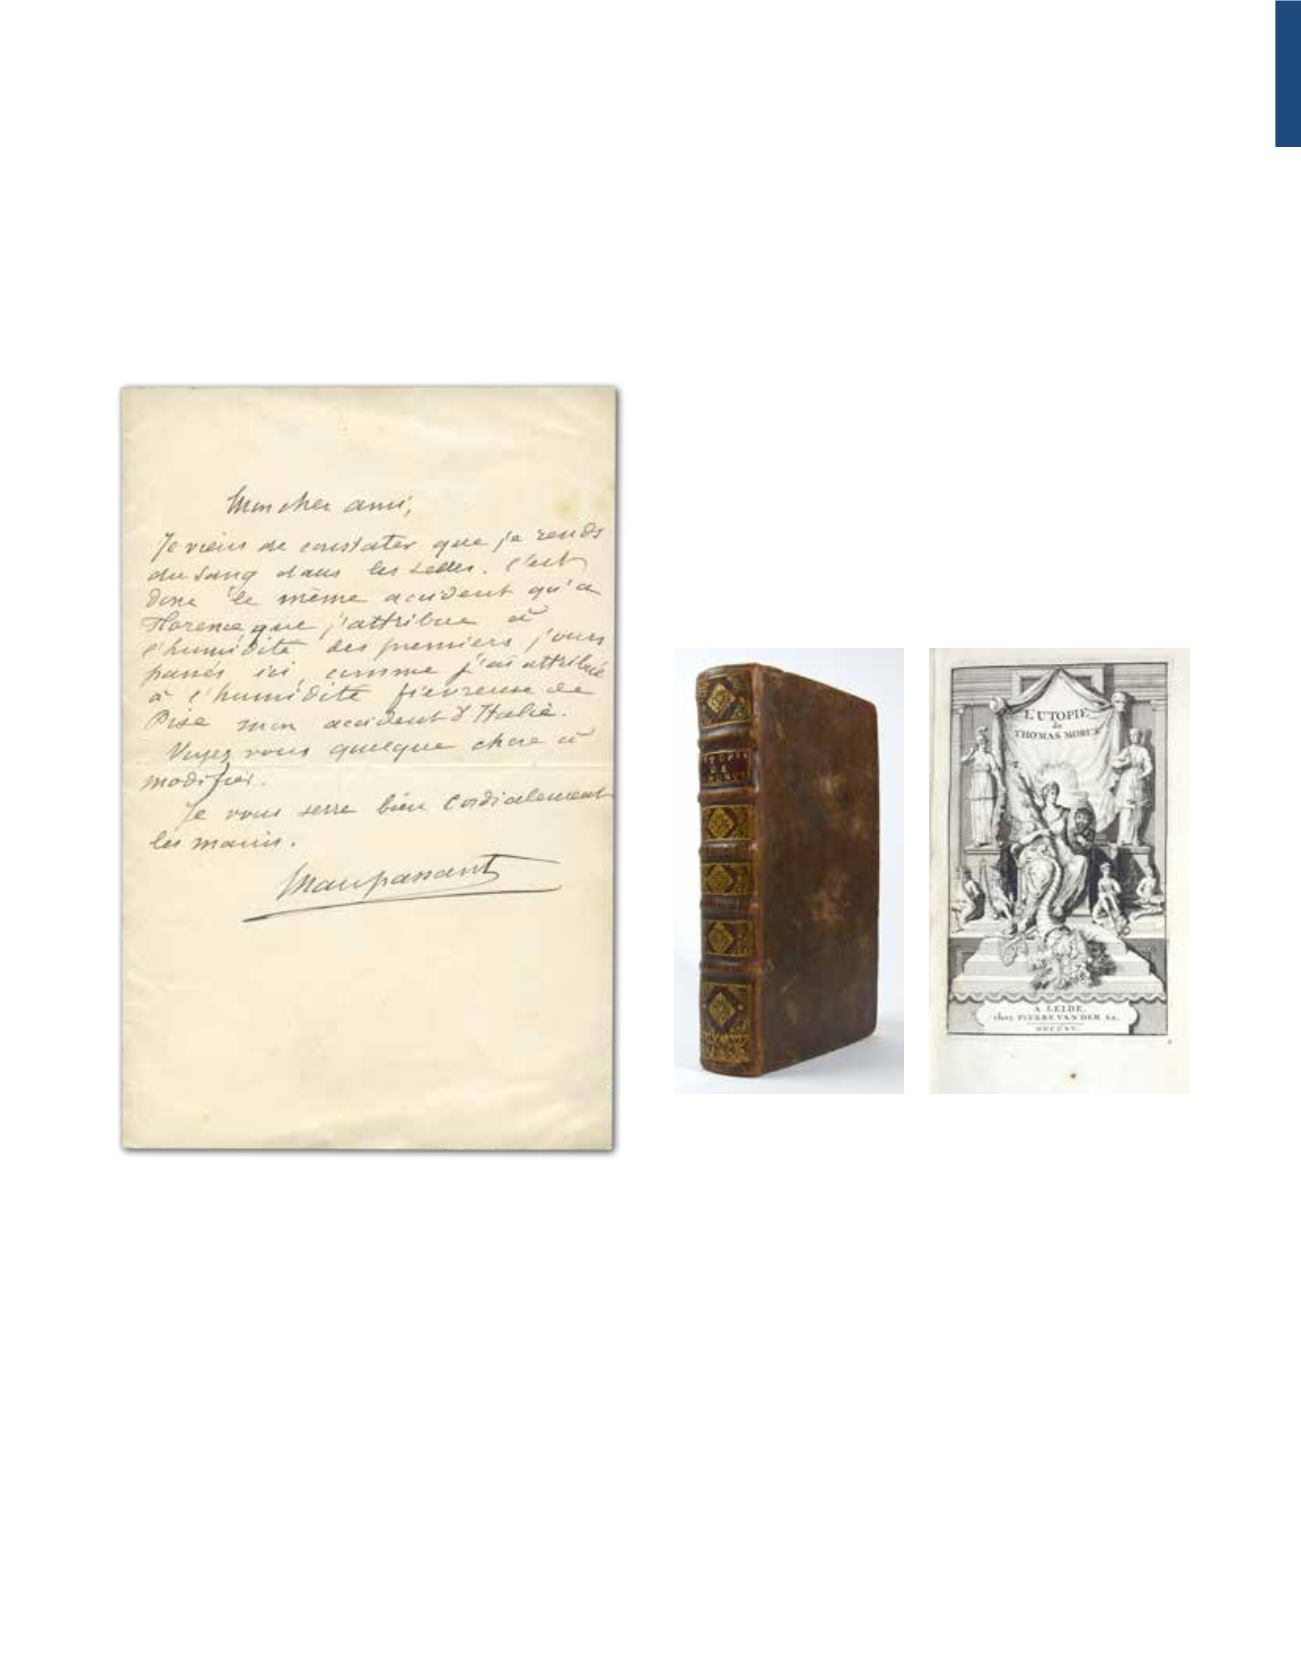 Mon cher ami,
Je viens de constater que je rends
du sang dans les selles. C'est
donc le même accident qu'a
Florence, que j'attribue à
l'humidité des premiers jours
passés ici, comme j'ai attribué
à l'humidité fievreuse de
Pise mon accident d'Italie.
Voyez vous quelque chose à
modifier.
Je vous serre bien cordialement
les mains.
Maupassant
UTOPIE
DE
MORUS
L'UTOPIE
de
THOMAS MORUS
A LEIDE,
chez PIERRE VAN DER Aa.
MDCCXV.